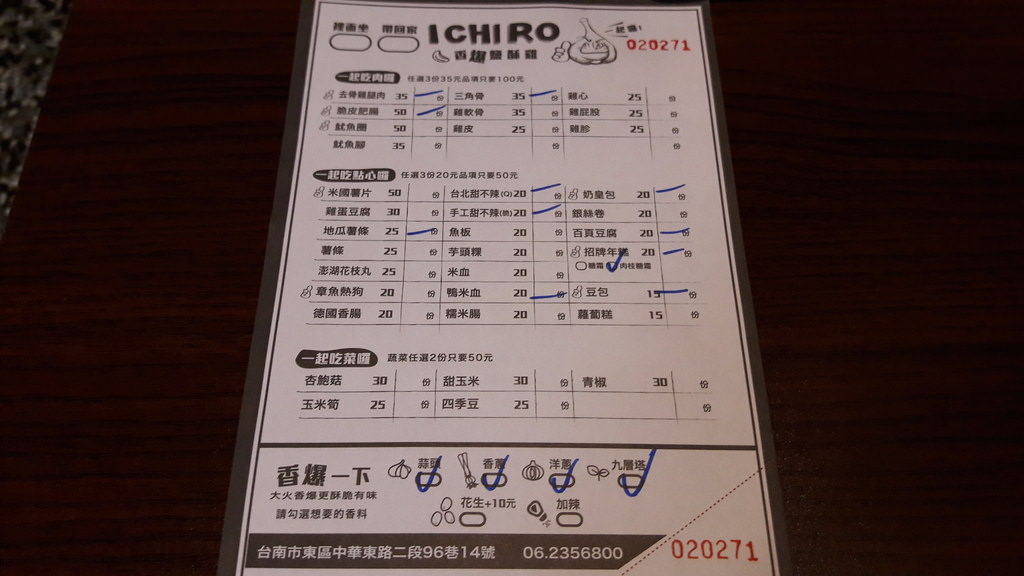 裡面坐 帶回家 ICHIRO 起鍋! 020271
香爆鹽酥雞
一起吃肉囉 任選3份35元品項只要100元
去骨雞腿肉 35 份 三角骨 35 份 雞心 25 份
脆皮肥腸 50 份 雞軟骨 35 份 雞屁股 25 份
魷魚圈 50 份 雞皮 25 份 雞胗 25 份
魷魚腳 35 份 份 份
一起吃點心囉 任選3份20元品項只要50元
米國薯片 50 份 台北甜不辣(Q) 20 份 奶皇包 20 份
雞蛋豆腐 30 份 手工甜不辣(脆) 20 份 銀絲卷 20 份
地瓜薯條 25 份 魚板 20 份 百頁豆腐 20 份
薯條 25 份 芋頭粿 20 份 招牌年糕 20 份
糖霜 肉桂糖霜
澎湖花枝丸 25 份 米血 20 份
章魚熱狗 20 份 鴨米血 20 份 豆包 15 份
德國香腸 20 份 糯米腸 20 份 蘿蔔糕 15 份
一起吃菜囉 蔬菜任選2份只要50元
杏鮑菇 30 份 甜玉米 30 份 青椒 30 份
玉米筍 25 份 四季豆 25 份 份
香爆一下 蒜頭 香蔥 洋蔥 九層塔
大火香爆更酥脆有味
請勾選想要的香料 花生+10元 加辣
台南市東區中華東路二段96巷14號 06.2356800 020271